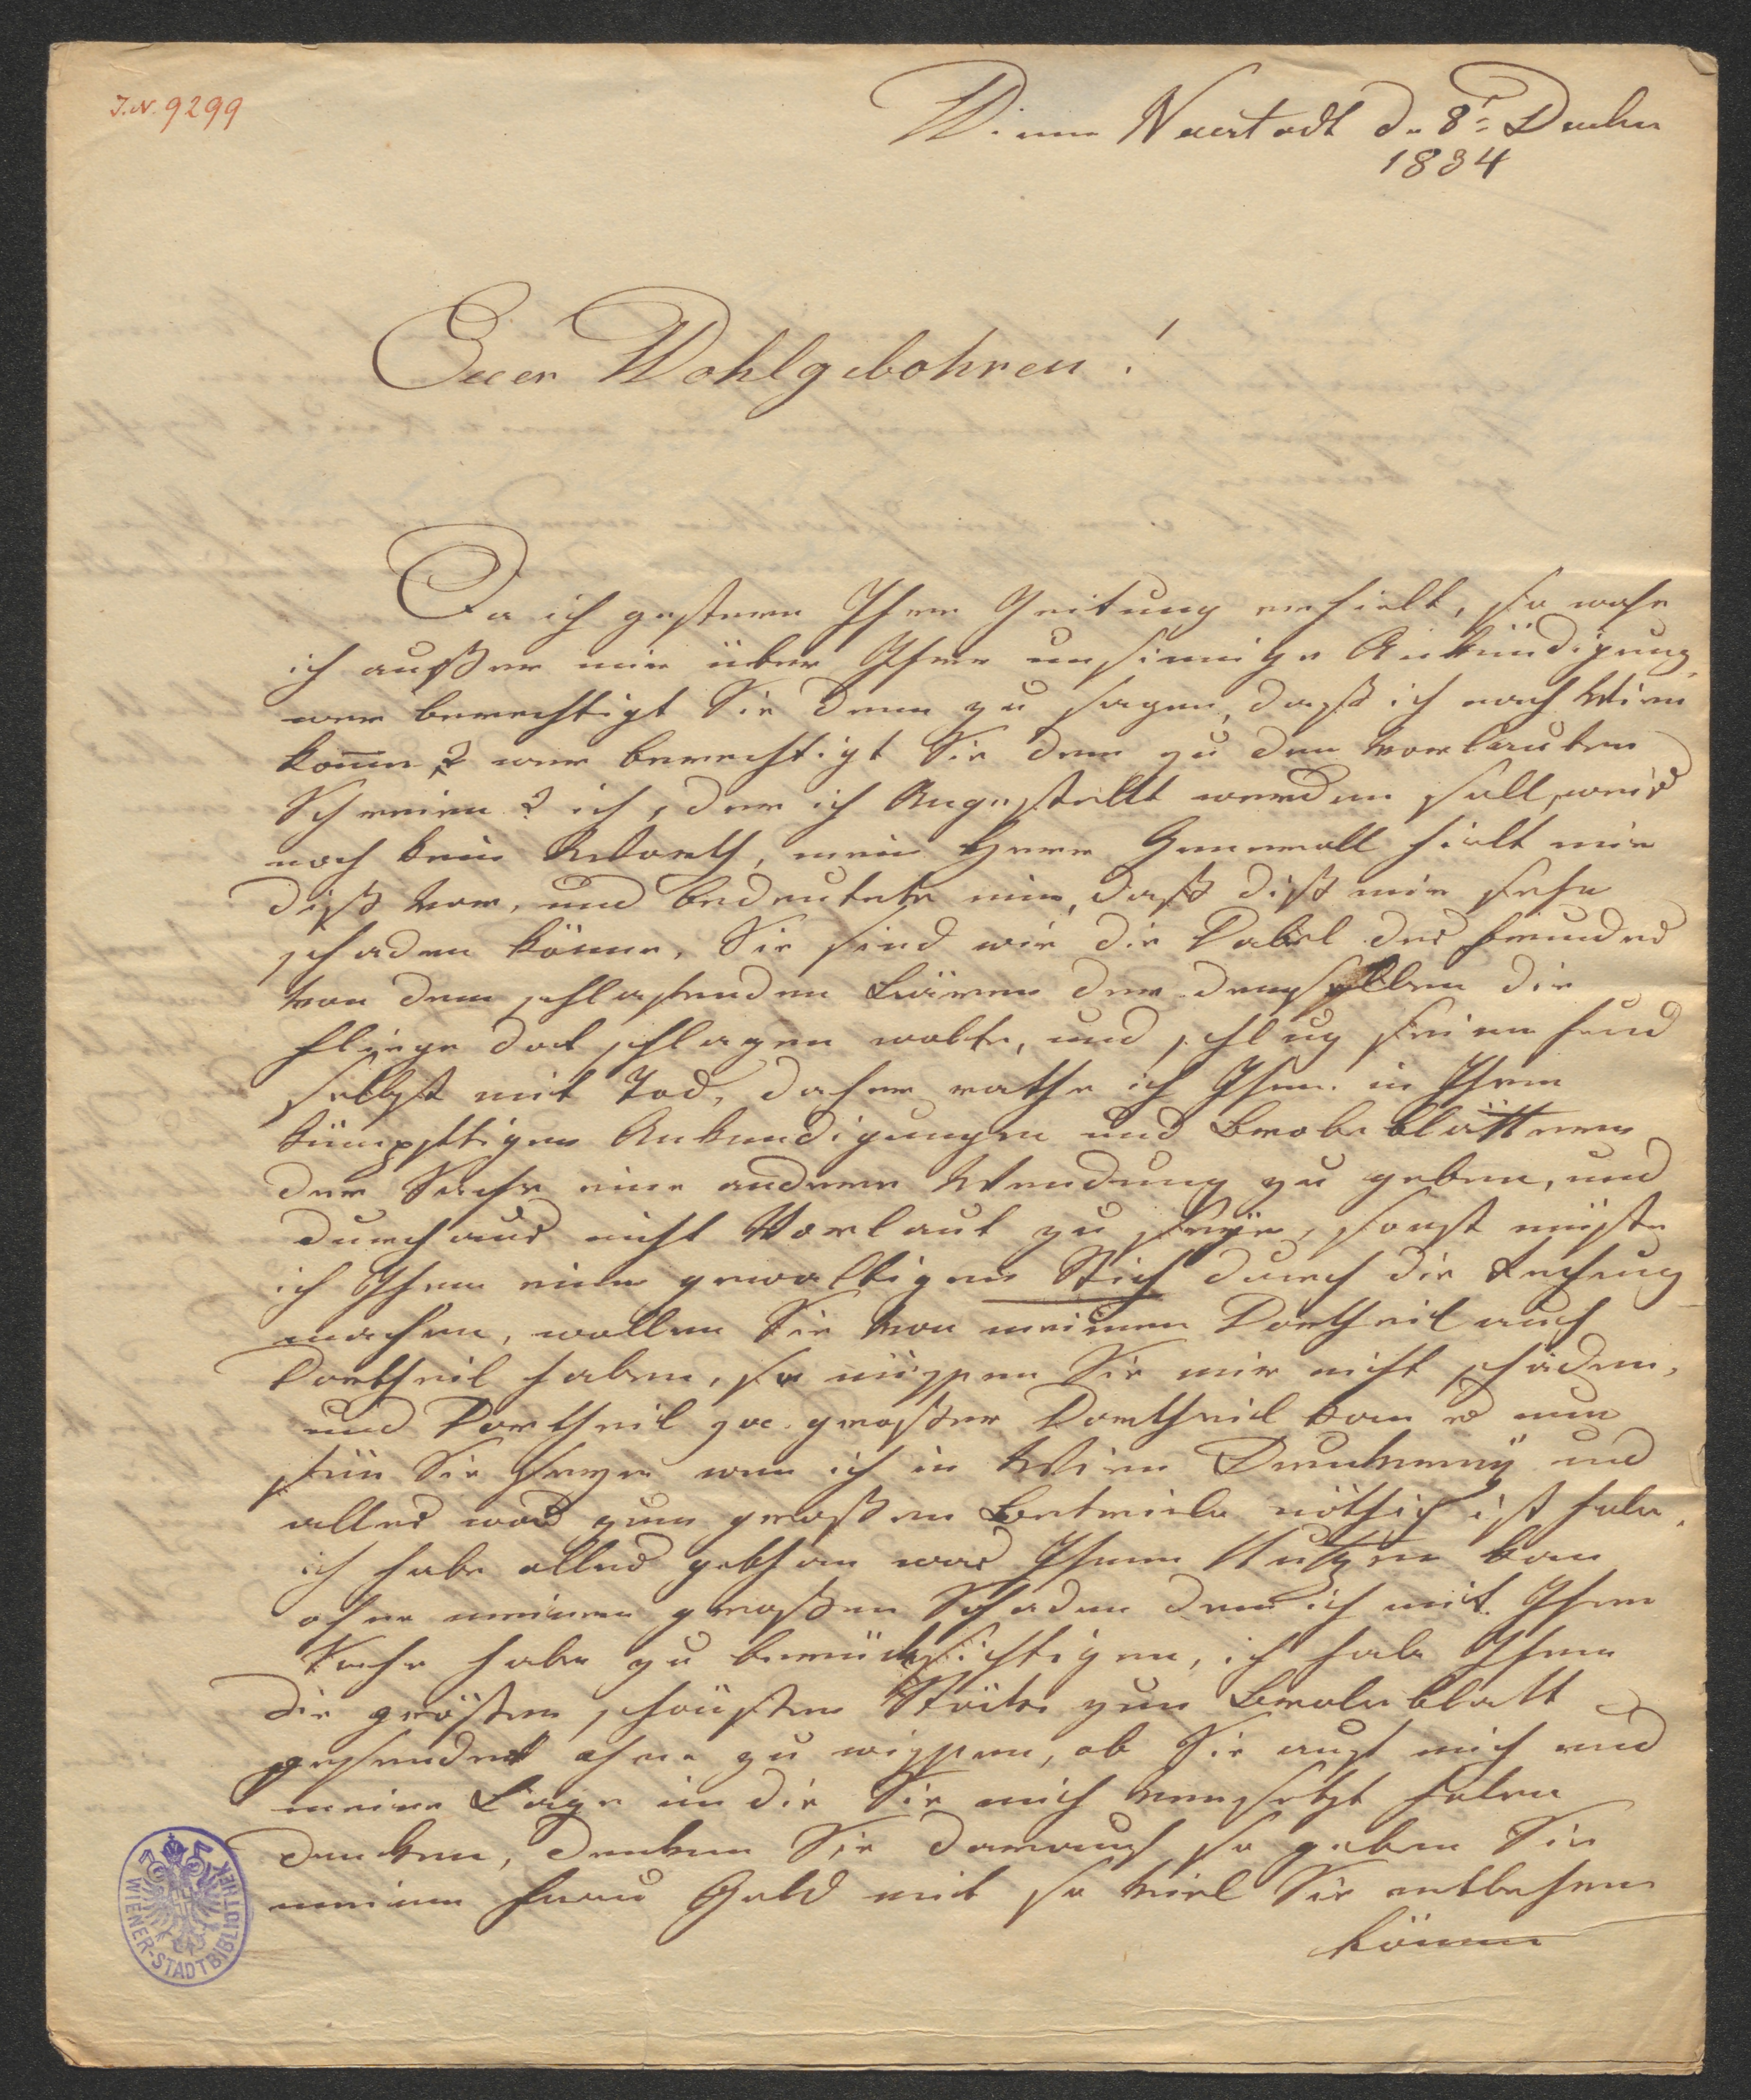 J.N. 9299
Wiener Neustadt d. 8t December
1834
Euer Wohlgebohren!
Da ich gestern Ihre Zeitung erhielt, so wahr
ich außer mir über Ihre unsinnige Ankündigung,
wer berechtigt Sie denn zu sagen, daß ich nach Wien
kome? wer berechtigt Sie denn zu den vorlauten
Schreien? ich, der ich Angestellt werden soll, weiß
noch kein Worth, mein Herr Generall hielt mir
diß vor, und bedeutete mir, daß diß mir sehr
schaden könne, Sie sind wie die Vabel des Freundes
von dem schlafenden Bären der demselben die
Fliege dod schlagen wolte, und schlug seinen Freund
selbst mit Tod, daher rathe ich Ihnen in Ihren
künpftigen Ankundigungen und Brobeblättern
der Sache eine andere Wendung zu geben, und
durchaus nicht Vorlaut zu seyn, sonst müste
ich Ihnen einen gewaltigen Stich durch die Rechnung
machen, wollen Sie von meinen Vortheil auch
Vortheil haben, so müssen Sie mir nicht schaden,
und Vortheil gar großer Vortheil kan es nur
für Sie seyn wen ich in Wien Druckerey und
alles was zum großen Betriebe nöthig ist habe,
ich habe alles gethan was Ihnen Nutzen kan
ohne meinen großen Schaden den ich mit Ihrer
Sache habe zu berücksichtigen, ich habe Ihnen
die grösten schönsten Stöcke zum Brobeblatt
gesendet ohne zu wissen, ob Sie auch mich und
meine Lage in die Sie mich versetzt haben
denken, denken Sie darauf so geben Sie
meiner Frau Geld mit so viel Sie entbehren
können
WIENER-STADTBIBLIOTHEK